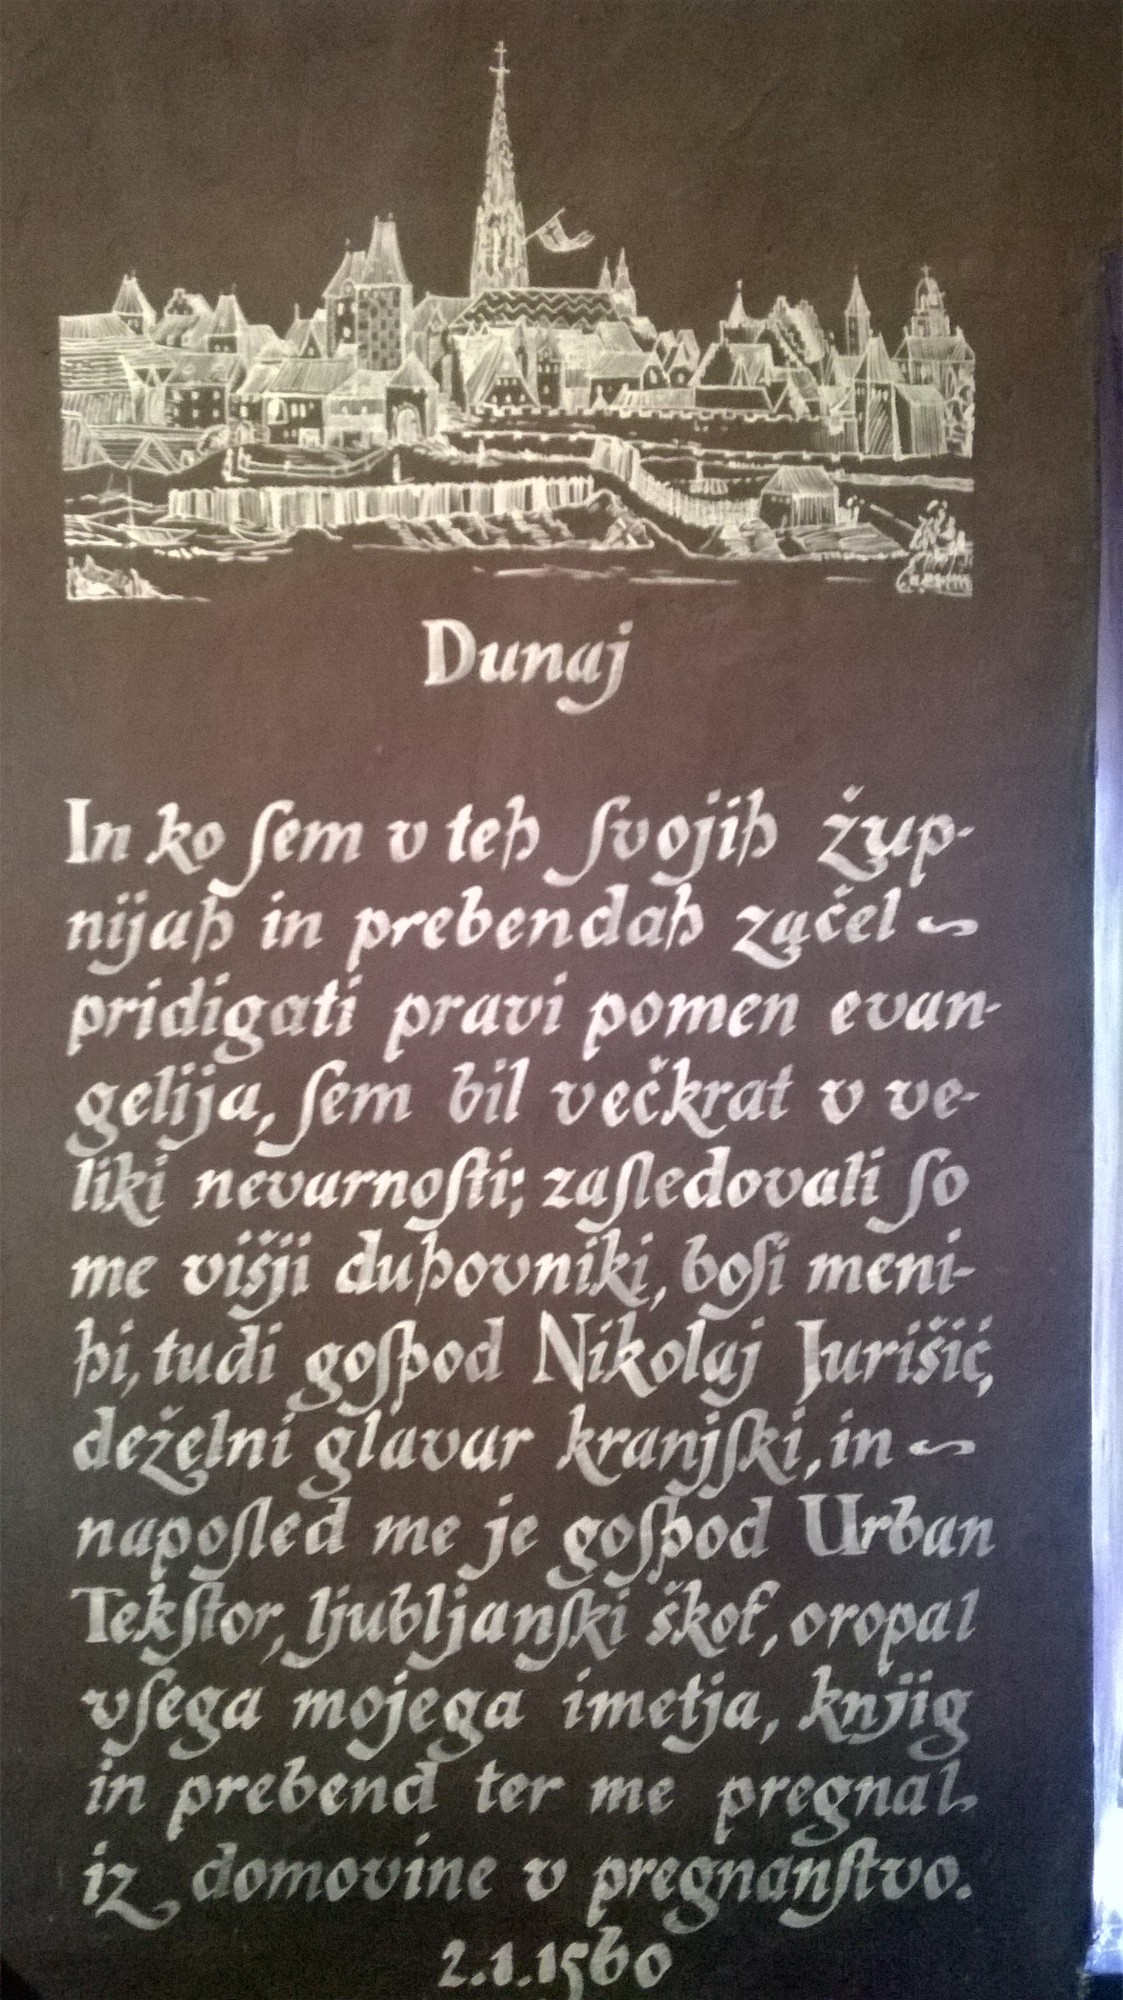 Dunaj
In ko ſem v teh ſvojih žup-
nijah in prebendah začel ~
pridigati pravi pomen evan-
gelija, ſem bil večkrat v ve-
liki nevarnoſti; zaſledovali ſo
me višji duhovniki, boſi meni-
hi, tudi goſpod Nikolaj Jurišić,
deželni glavar kranjſki, in ~
napoſled me je goſpod Urban
Tekſtor, ljubljanſki škof, oropal
vſega mojega imetja, knjig
in prebend ter me pregnal
iz domovine v pregnanſtvo.
2.1.1560